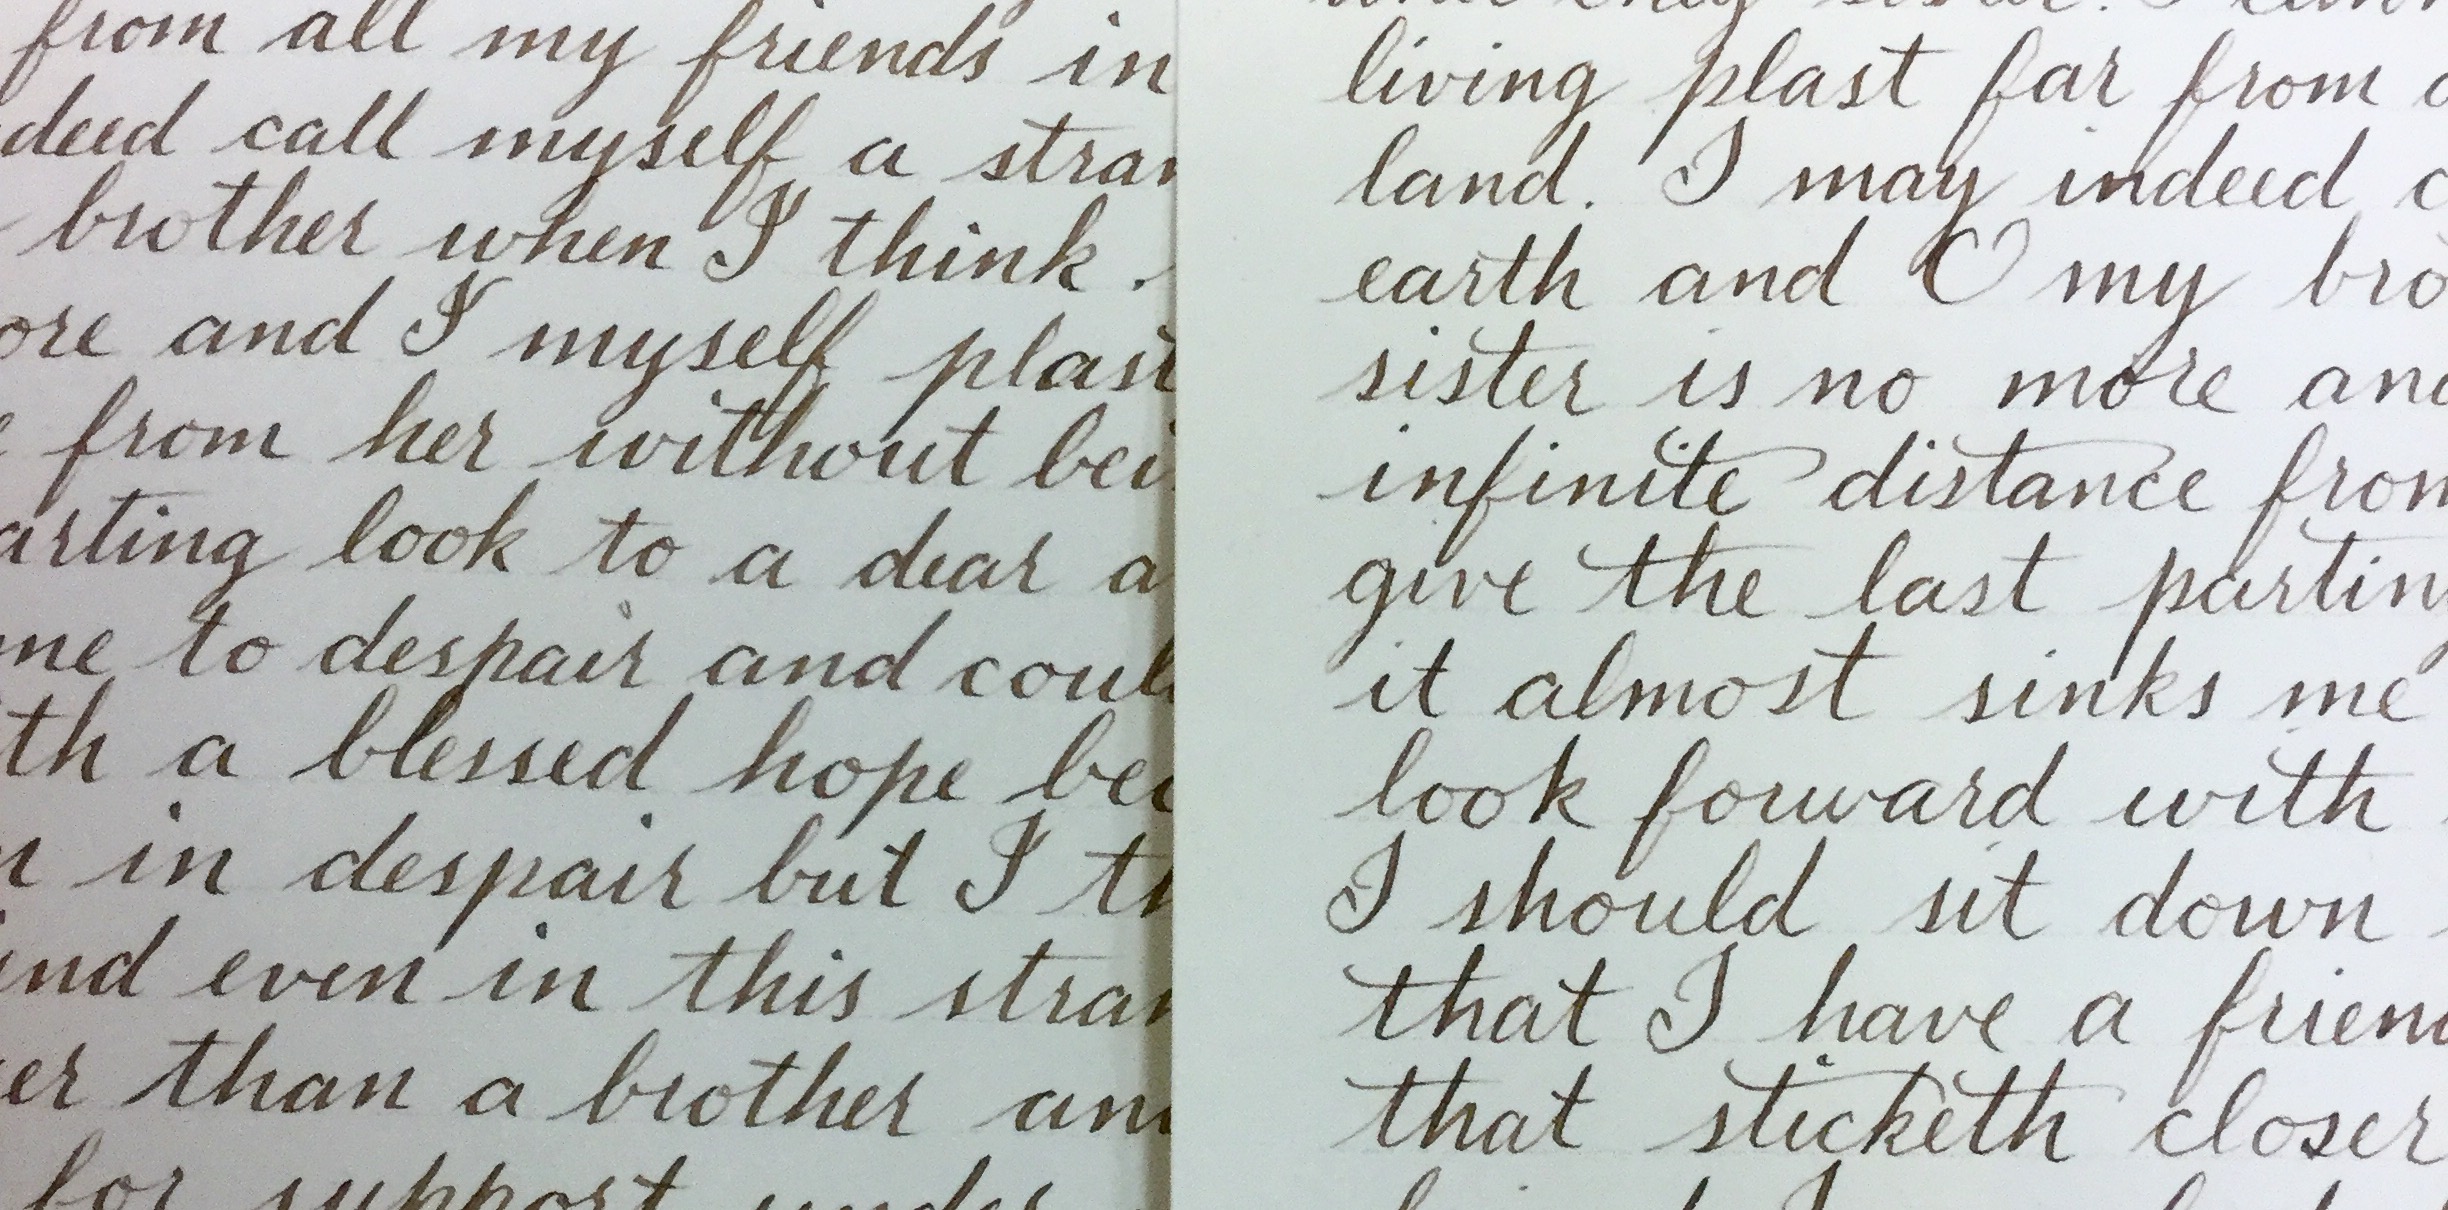 from all my friends in
deed call myself a stran
brother when I think.
ore and I myself plast
from her without bei
arting look to a dear a
me to despair and coul
th a blessed hope bec
in despair but I th
ind even in this stran
er than a brother and
for support under
living plast far from a
land. I may indeed c
earth and O my bro
sister is no more and
infinite distance from
give the last parting
it almost sinks me
look forward with
I should sit down
that I have a friend
that sticketh closer